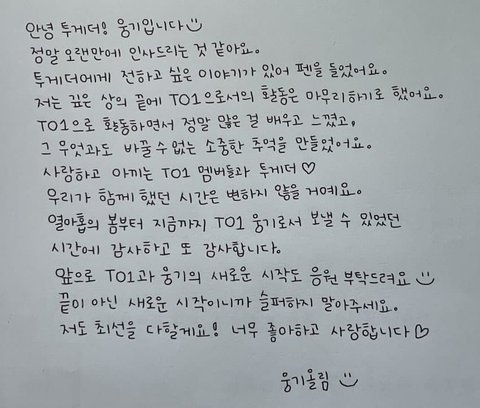 안녕 투게더! 웅기입니다 :)
정말 오랜만에 인사드리는 것 같아요.
투게더에게 전하고 싶은 이야기가 있어 펜을 들었어요.
저는 깊은 상의 끝에 TO1으로서의 활동은 마무리하기로 했어요.
TO1으로 활동하면서 정말 많은 걸 배우고 느꼈고,
그 무엇과도 바꿀 수 없는 소중한 추억을 만들었어요.
사랑하고 아끼는 TO1 멤버들과 투게더♡
우리가 함께 했던 시간은 변하지 않을 거예요.
열아홉의 봄부터 지금까지 TO1 웅기로서 보낼 수 있었던
시간에 감사하고 또 감사합니다.
앞으로 TO1과 웅기의 새로운 시작도 응원 부탁드려요 :)
끝이 아닌 새로운 시작이니까 슬퍼하지 말아주세요.
저도 최선을 다할게요! 너무 좋아하고 사랑합니다♡
웅기올림 :)